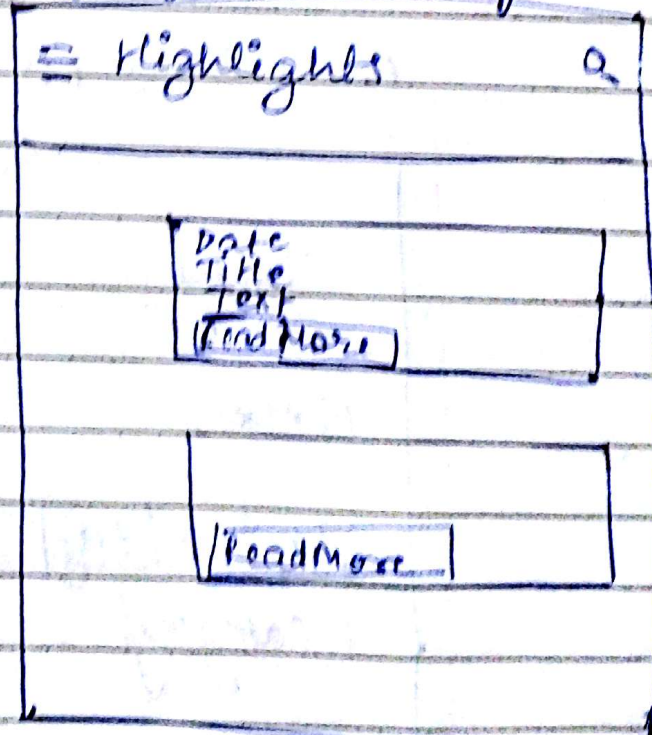 Highlights
Date
Title
Text
Read More
Read More